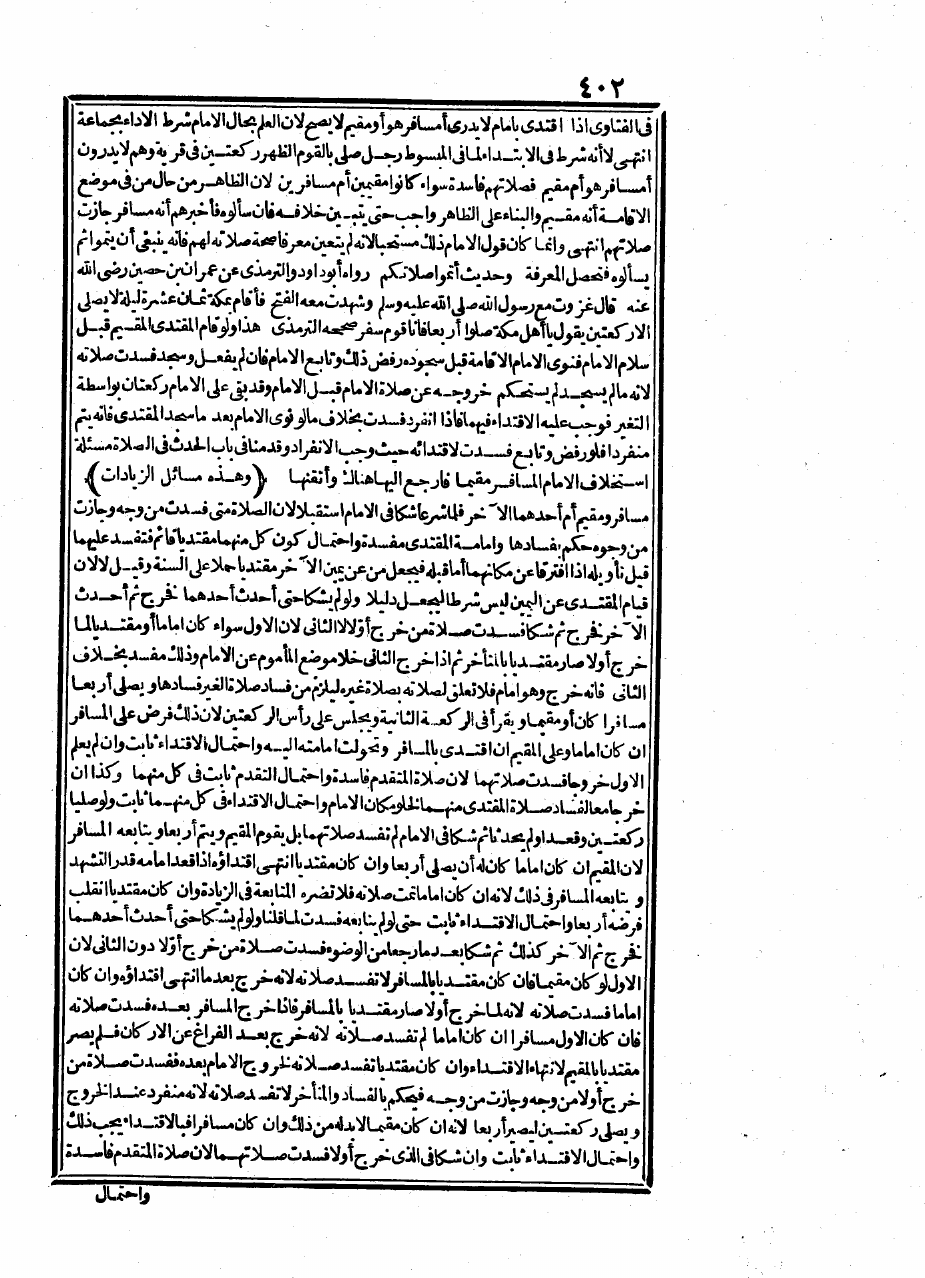 ٤٠٢
فى الفتاوى اذا اقتدى بامام لا يدرى أمسافر هو أو مقيم لا يصح لان العلم بحال الامام شرط الاداء بجماعة
انتهى لا أنه شرط فى الابتداء لما فى المبسوط رجل صلى بالقوم الظهر ركعتين فى قرية وهم لا يدرون
أمسافر هو أم مقيم فصلاتهم فاسدة سواء كانوا مقيمين أم مسافرين لان الظاهر من حال من فى موضع
الاقامة أنه مقيم والبناء على الظاهر واجب حتى يتبين خلافه فان سألوه فأخبرهم أنه مسافر جازت
صلاتهم انتهى وانما كان قول الامام ذلك مستحبا لانه لم يتعين معرفا صحة صلاته لهم فانه ينبغى أن يتموا ثم
يسألوه فتحصل المعرفة وحديث أتموا صلاتكم رواه أبو داود والترمذى عن عمران بن حصين رضى الله
عنه قال غزوت مع رسول الله صلى الله عليه وسلم وشهدت معه الفتح فأقام بمكة ثمان عشرة ليلة لا يصلى
الا ركعتين يقول يا أهل مكة صلوا أربعا فانا قوم سفر صححه الترمذى هذا ولو قام المقتدى المقيم قبل
سلام الامام فنوى الامام الاقامة قبل سجوده رفض ذلك وتابع الامام فان لم يفعل وسجد فسدت صلاته
لانه مالم يسجد لم يستحكم خروجه عن صلاة الامام قبل الامام وقد بقى على الامام ركعتان بواسطة
التغير فوجب عليه الاقتداء فيهما فاذا انفرد فسدت بخلاف مالو نوى الامام بعد ما سجد المقتدى فانه يتم
منفردا فلو رفض وتابع فسدت لاقتدائه حيث وجب الانفراد وقدمنا فى باب الحدث فى الصلاة مسئلة
استخلاف الامام المسافر مقيما فارجع اليها هنالك وأتقنها ﴿وهذه مسائل الزيادات﴾
مسافر ومقيم أم أحدهما الآخر فلما شرعا شكا فى الامام استقبلا لان الصلاة متى فسدت من وجه وجازت
من وجوه حكم بفسادها وامامة المقتدى مفسدة واحتمال كون كل منهما مقتديا قائم فتفسد عليهما
قيل تأويله اذا افترقا عن مكانهما أما قبله فيجعل من عن يمين الآخر مقتديا حملا على السنة وقيل لا لان
قيام المقتدى عن اليمين ليس شرطا ليجعل دليلا ولو لم يشكا حتى أحدث أحدهما فخرج ثم أحدث
الآخر فخرج ثم شكا فسدت صلاة من خرج أولا لا الثانى لان الاول سواء كان اماما أو مقتديا لما
خرج أولا صار مقتديا بالمتأخر ثم اذا خرج الثانى خلا موضع المأموم عن الامام وذلك مفسد بخلاف
الثانى فانه خرج وهو امام فلا تعلق لصلاته بصلاة غيره ليلزم من فساد صلاة الغير فسادها ويصلى أربعا
مسافرا كان أو مقيما ويقرأ فى الركعة الثانية ويجلس على رأس الركعتين لان ذلك فرض على المسافر
ان كان اماما وعلى المقيم ان اقتدى بالمسافر وتحولت امامته اليه واحتمال الاقتداء ثابت وان لم يعلم
الاول خروجا فسدت صلاتهما لان صلاة المتقدم فاسدة واحتمال التقدم ثابت فى كل منهما وكذا ان
خرجا معا لفساد صلاة المقتدى منهما لخلو مكان الامام واحتمال الاقتداء فى كل منهما ثابت ولو صليا
ركعتين وقعدا ولم يحدثا ثم شكا فى الامام لم تفسد صلاتهما بل يقوم المقيم ويتم أربعا ويتابعه المسافر
لان المقيم ان كان اماما كان له أن يصلى أربعا وان كان مقتديا انتهى اقتداؤه اذا قعد امامه قدر التشهد
ويتابعه المسافر فى ذلك لانه ان كان اماما تمت صلاته فلا تضره المتابعة فى الزيادة وان كان مقتديا انقلب
فرضه أربعا واحتمال الاقتداء ثابت حتى لو لم يتابعه فسدت لما قلنا ولو لم يشكا حتى أحدث أحدهما
فخرج ثم الآخر كذلك ثم شكا بعد مارجعا من الوضوء فسدت صلاة من خرج أولا دون الثانى لان
الاول لو كان مقيما فان كان مقتديا بالمسافر لا تفسد صلاته لانه خرج بعد ما انتهى اقتداؤه وان كان
اماما فسدت صلاته لانه لما خرج أولا صار مقتديا بالمسافر فاذا خرج المسافر بعده فسدت صلاته
فان كان الاول مسافرا ان كان اماما لم تفسد صلاته لانه خرج بعد الفراغ عن الاركان فلم يصر
مقتديا بالمقيم لانتهاء الاقتداء وان كان مقتديا تفسد صلاته لخروج الامام بعده ففسدت صلاة من
خرج أولا من وجه وجازت من وجه فيحكم بالفساد والمتأخر لا تفسد صلاته لانه منفرد عند الخروج
ويصلى ركعتين ليصير أربعا لانه ان كان مقيما لا بد له من ذلك وان كان مسافرا فبالاقتداء يجب ذلك
واحتمال الاقتداء ثابت وان شكا فى الذى خرج أولا فسدت صلاتهما لان صلاة المتقدم فاسدة
واحتمال